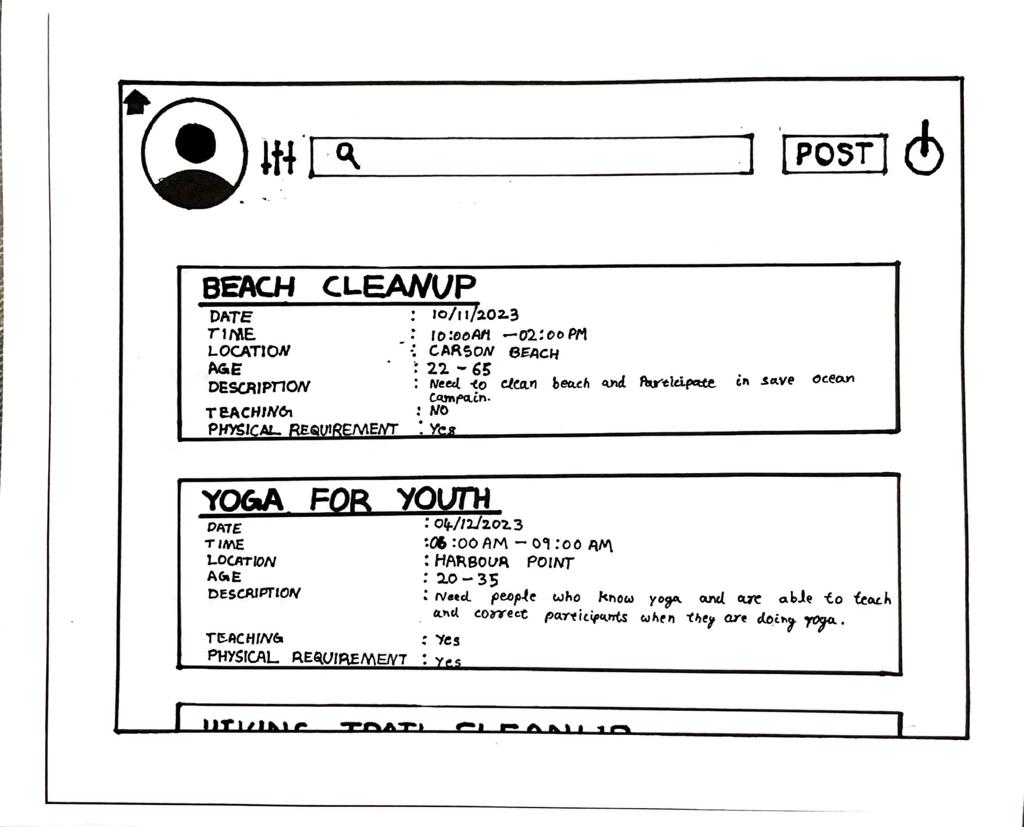 POST
BEACH CLEANUP
DATE : 10/11/2023
TIME : 10:00AM - 02:00PM
LOCATION : CARSON BEACH
AGE : 22 - 65
DESCRIPTION : Need to clean beach and Participate in save ocean
campain.
TEACHING : NO
PHYSICAL REQUIREMENT : Yes
YOGA FOR YOUTH
DATE : 04/12/2023
TIME : 06:00 AM - 09:00 AM
LOCATION : HARBOUR POINT
AGE : 20-35
DESCRIPTION : Need people who know yoga and are able to teach
and correct participants when they are doing yoga.
TEACHING : Yes
PHYSICAL REQUIREMENT : Yes
HIKING TRAIL CLEANUP